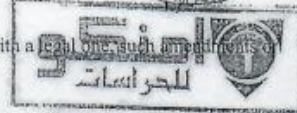 ith a legal one, such amendments or
امنكو
للحراسات